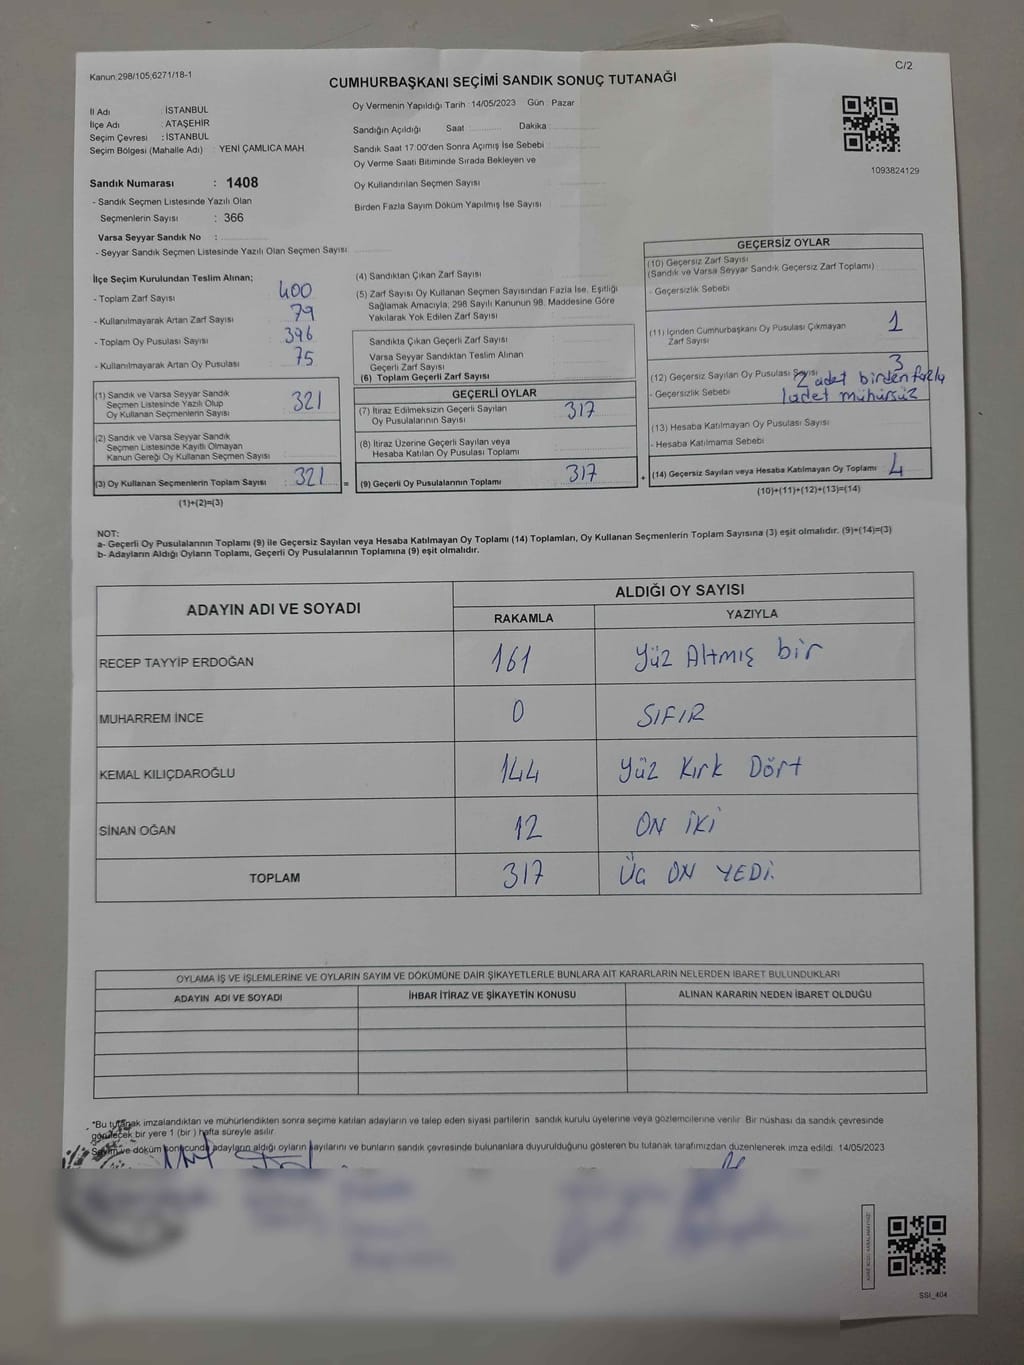 Kanun:298/105;6271/18-1
C/2
CUMHURBAŞKANI SEÇİMİ SANDIK SONUÇ TUTANAĞI
İl Adı : İSTANBUL
İlçe Adı : ATAŞEHİR
Seçim Çevresi : İSTANBUL
Seçim Bölgesi (Mahalle Adı) : YENİ ÇAMLICA MAH.
Sandık Numarası : 1408
- Sandık Seçmen Listesinde Yazılı Olan
Seçmenlerin Sayısı : 366
Varsa Seyyar Sandık No :
- Seyyar Sandık Seçmen Listesinde Yazılı Olan Seçmen Sayısı:
Oy Vermenin Yapıldığı Tarih :14/05/2023 Gün : Pazar
Sandığın Açıldığı Saat Dakika
Sandık Saat 17:00'den Sonra Açımış İse Sebebi :
Oy Verme Saati Bitiminde Sırada Bekleyen ve
Oy Kullandırılan Seçmen Sayısı
Birden Fazla Sayım Döküm Yapılmış İse Sayısı :
1093824129
İlçe Seçim Kurulundan Teslim Alınan;
- Toplam Zarf Sayısı : 400
- Kullanılmayarak Artan Zarf Sayısı : 79
- Toplam Oy Pusulası Sayısı : 396
- Kullanılmayarak Artan Oy Pusulası : 75
(1) Sandık ve Varsa Seyyar Sandık
Seçmen Listesinde Yazılı Olup
Oy Kullanan Seçmenlerin Sayısı : 321
(2) Sandık ve Varsa Seyyar Sandık
Seçmen Listesinde Kayıtlı Olmayan
Kanun Gereği Oy Kullanan Seçmen Sayısı :
(3) Oy Kullanan Seçmenlerin Toplam Sayısı : 321 =
(1)+(2)=(3)
(4) Sandıktan Çıkan Zarf Sayısı
(5) Zarf Sayısı Oy Kullanan Seçmen Sayısından Fazla İse, Eşitliği
Sağlamak Amacıyla; 298 Sayılı Kanunun 98. Maddesine Göre
Yakılarak Yok Edilen Zarf Sayısı
Sandıkta Çıkan Geçerli Zarf Sayısı
Varsa Seyyar Sandıktan Teslim Alınan
Geçerli Zarf Sayısı
(6) Toplam Geçerli Zarf Sayısı
GEÇERLİ OYLAR
(7) İtiraz Edilmeksizin Geçerli Sayılan
Oy Pusulalarının Sayısı : 317
(8) İtiraz Üzerine Geçerli Sayılan veya
Hesaba Katılan Oy Pusulası Toplamı :
(9) Geçerli Oy Pusulalarının Toplamı : 317 +
GEÇERSİZ OYLAR
(10) Geçersiz Zarf Sayısı
(Sandık ve Varsa Seyyar Sandık Geçersiz Zarf Toplamı) :
- Geçersizlik Sebebi :
(11) İçinden Cumhurbaşkanı Oy Pusulası Çıkmayan
Zarf Sayısı : 1
(12) Geçersiz Sayılan Oy Pusulası Sayısı : 3
- Geçersizlik Sebebi : 2 adet birden fazla
1 adet mühürsüz
(13) Hesaba Katılmayan Oy Pusulası Sayısı :
- Hesaba Katılmama Sebebi :
(14) Geçersiz Sayılan veya Hesaba Katılmayan Oy Toplamı : 4
(10)+(11)+(12)+(13)=(14)
NOT:
a- Geçerli Oy Pusulalarının Toplamı (9) ile Geçersiz Sayılan veya Hesaba Katılmayan Oy Toplamı (14) Toplamları, Oy Kullanan Seçmenlerin Toplam Sayısına (3) eşit olmalıdır. (9)+(14)=(3)
b- Adayların Aldığı Oyların Toplamı, Geçerli Oy Pusulalarının Toplamına (9) eşit olmalıdır.
ADAYIN ADI VE SOYADI
ALDIĞI OY SAYISI
RAKAMLA YAZIYLA
RECEP TAYYİP ERDOĞAN 161 Yüz Altmış bir
MUHARREM İNCE 0 SIFIR
KEMAL KILIÇDAROĞLU 144 Yüz Kırk Dört
SİNAN OĞAN 12 ON İKİ
TOPLAM 317 Üç ON YEDİ.
OYLAMA İŞ VE İŞLEMLERİNE VE OYLARIN SAYIM VE DÖKÜMÜNE DAİR ŞİKAYETLERLE BUNLARA AİT KARARLARIN NELERDEN İBARET BULUNDUKLARI
ADAYIN ADI VE SOYADI İHBAR İTİRAZ VE ŞİKAYETİN KONUSU ALINAN KARARIN NEDEN İBARET OLDUĞU
*Bu tutanak imzalandıktan ve mühürlendikten sonra seçime katılan adayların ve talep eden siyasi partilerin sandık kurulu üyelerine veya gözlemcilerine verilir. Bir nüshası da sandık çevresinde
görülecek bir yere 1 (bir) hafta süreyle asılır.
Sayım ve döküm sonucunda adayların aldığı oyların sayılarını ve bunların sandık çevresinde bulunanlara duyurulduğunu gösteren bu tutanak tarafımızdan düzenlenerek imza edildi. 14/05/2023
SSI_404